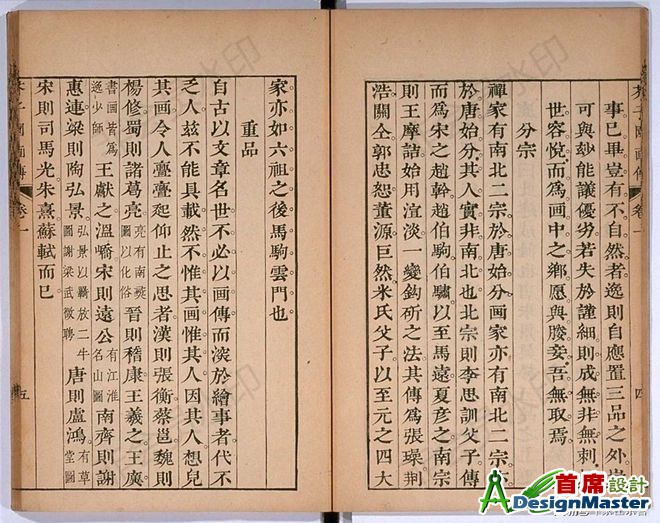 芥子園画傳 卷一 四
事已畢豈有不自然者逸則自應置三品之外豈
可與妙能議優劣若失於謹細則成無非無刺
世容悅而爲画中之鄉愿與媵妾吾無取焉
分宗
禪家有南北二宗於唐始分画家亦有南北二宗亦
於唐始分其人實非南北也北宗則李思訓父子傳
而爲宋之趙幹趙伯駒伯驌以至馬遠夏彥之南宗
則王摩詰始用渲淡一變鈎斫之法其傳爲張璪荆
浩關仝郭忠恕董源巨然米氏父子以至元之四大
家亦如六祖之後馬駒雲門也
重品
自古以文章名世不必以画傳而深於繪事者代不
乏人茲不能具載然不惟其画惟其人因其人想見
其画令人亹亹起仰止之思者漢則張衡蔡邕魏則
楊修蜀則諸葛亮亮有南夷圖以化俗晉則嵇康王羲之王廙
書画皆爲逸少師王獻之溫嶠宋則遠公有江淮名山圖南齊則謝
惠連梁則陶弘景弘景以羈放二牛圖謝梁武徵聘唐則盧鴻有草堂圖
宋則司馬光朱熹蘇軾而已
芥子園画傳 卷一 五
首席設計
DesignMaster